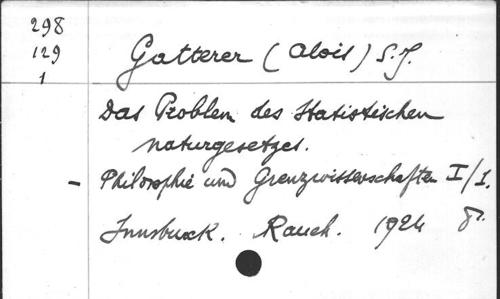 298
129
1
Gatterer (Alois) S.J.
Das Problem des statistischen
Naturgesetzes.
- Philosophie und Grenzwissenschaften I/1.
Innsbruck. Rauch. 1924 8°.